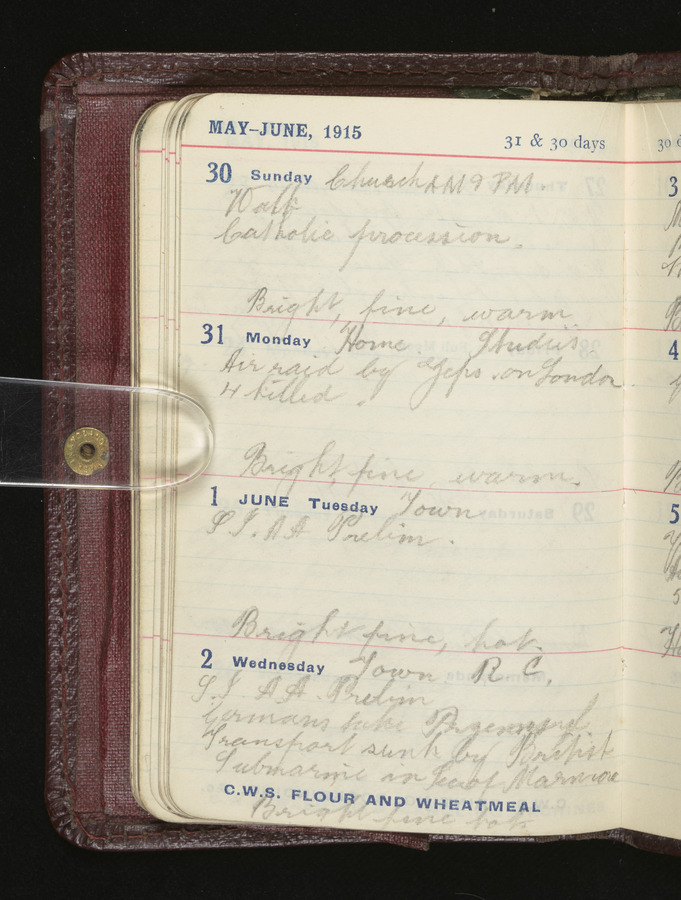 MAY–JUNE, 1915
31 & 30 days
30 Sunday Church AM & PM.
Walk
Catholic procession.
Bright, fine, warm
31 Monday Home. Studies
Air raid by Zeps. on London
4 killed.
Bright, fine, warm.
1 JUNE Tuesday Town
S.I.AA Prelim.
Bright fine, hot.
2 Wednesday Town R C.
S.I AA. Prelim
Germans take
Transport sunk by British
Submarine in Sea of Marmora
C.W.S. FLOUR AND WHEATMEAL
Bright fine hot.
30
3
4
5